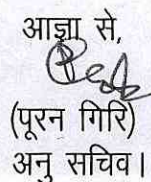 आज्ञा से,
(पूरन गिरि)
अनु सचिव।